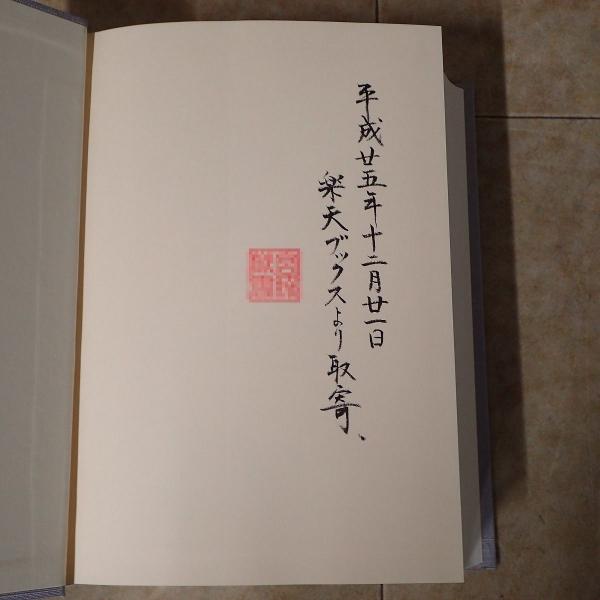 平成廿五年十二月廿一日
楽天ブックスより取寄、